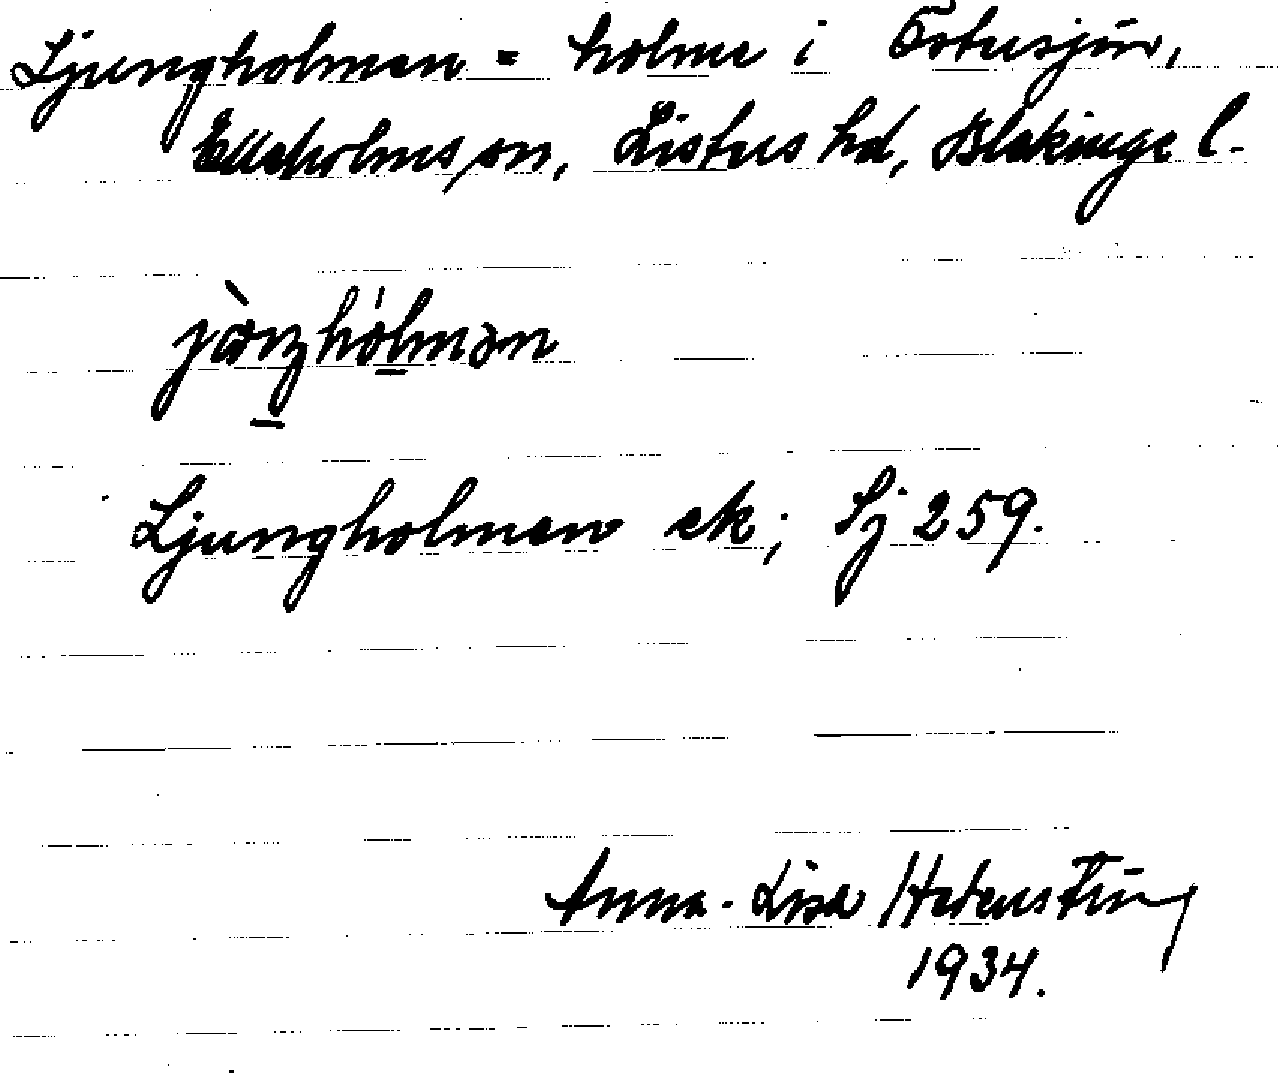 Ljungholmen = holme i Östersjön,
Elleholms sn, Listers hd, Blekinge l.
jàŋhólmən
Ljungholmen ek; Sj 259.
Anna-Lisa
1934.